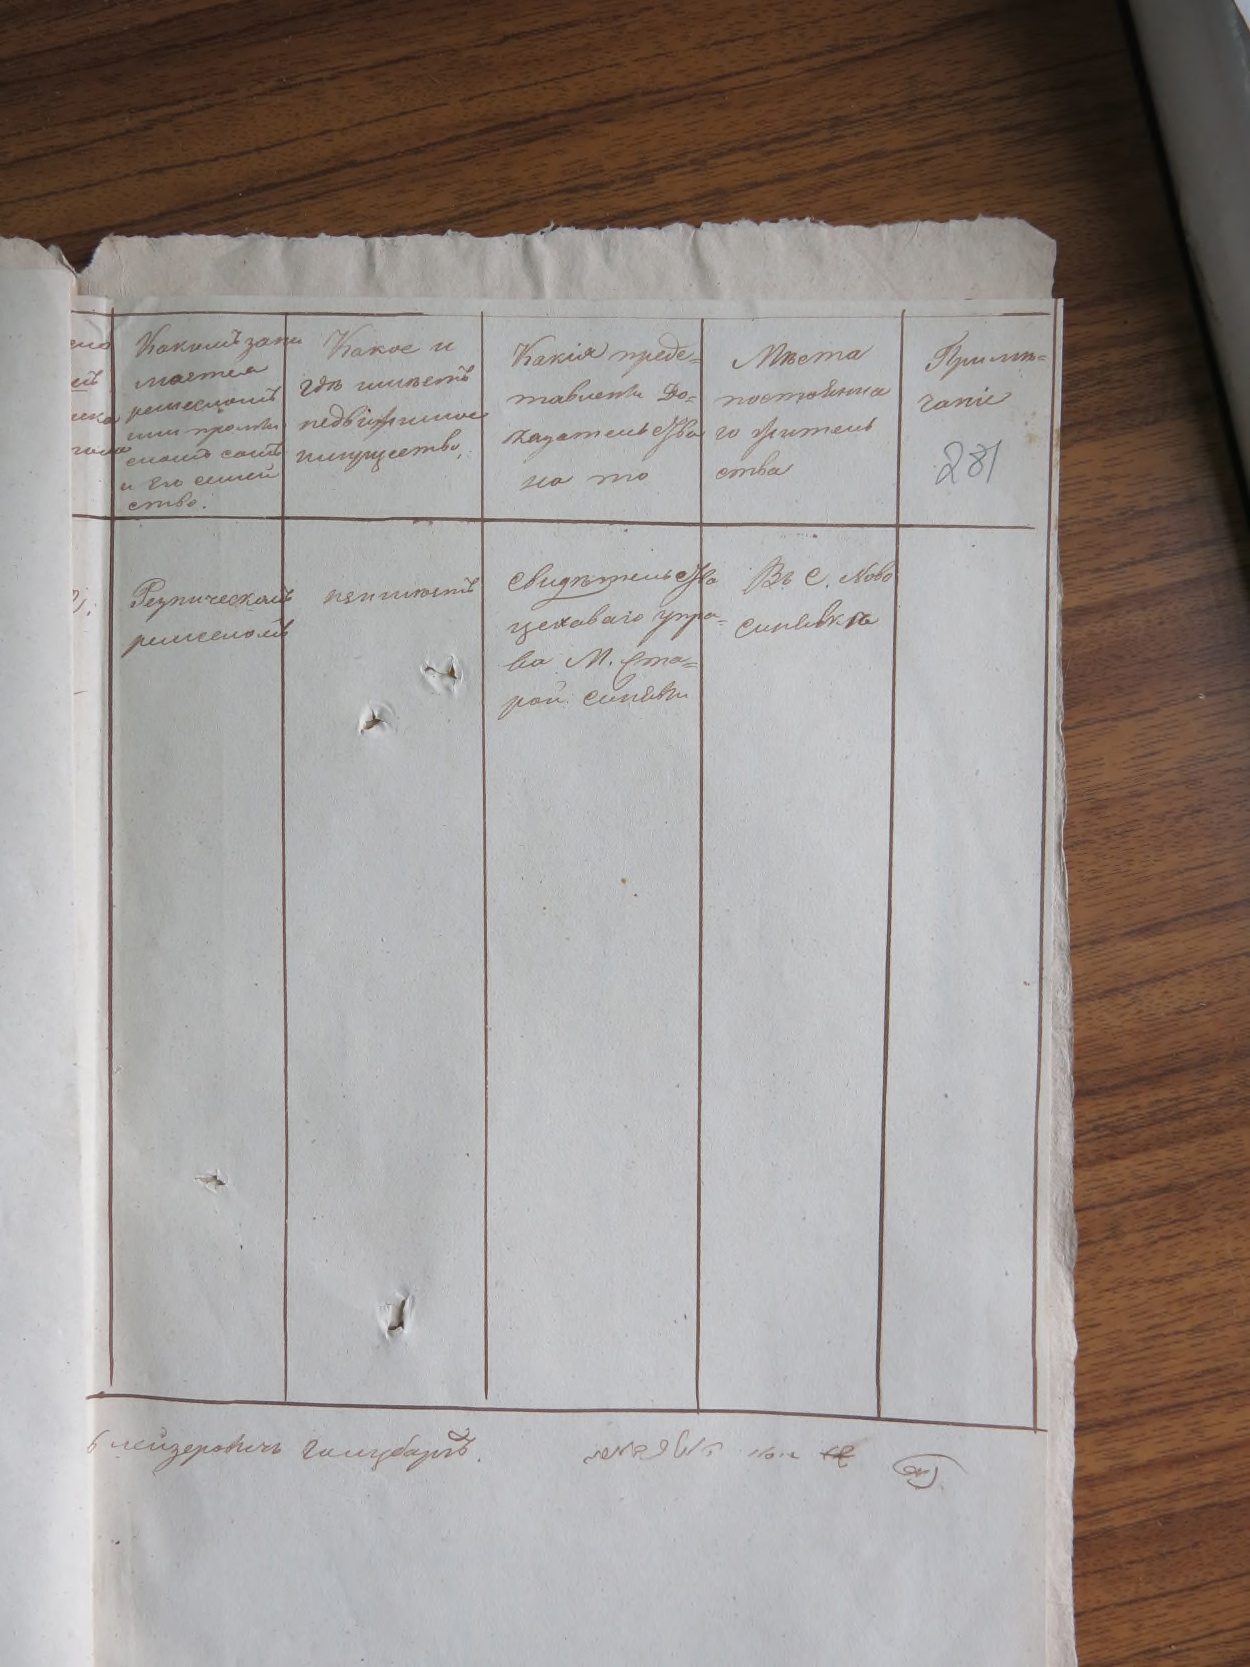 Какимъ зани
мается
ремесломъ
или промы
сломъ самъ
и его семей
ство.
Какое и
гдѣ имѣетъ
недвижимое
имущество,
Какія предс=
тавлены До=
казательства
на то
Мѣста
постоянна
го житель
ства
Примѣ=
чаніе
281
Резническимъ
ремесломъ
неимѣетъ
Свидѣтельство
цеховаго упра=
ва М. Ста=
рой Синявы
Въ С. Ново
Синявкѣ
лейзеровичъ